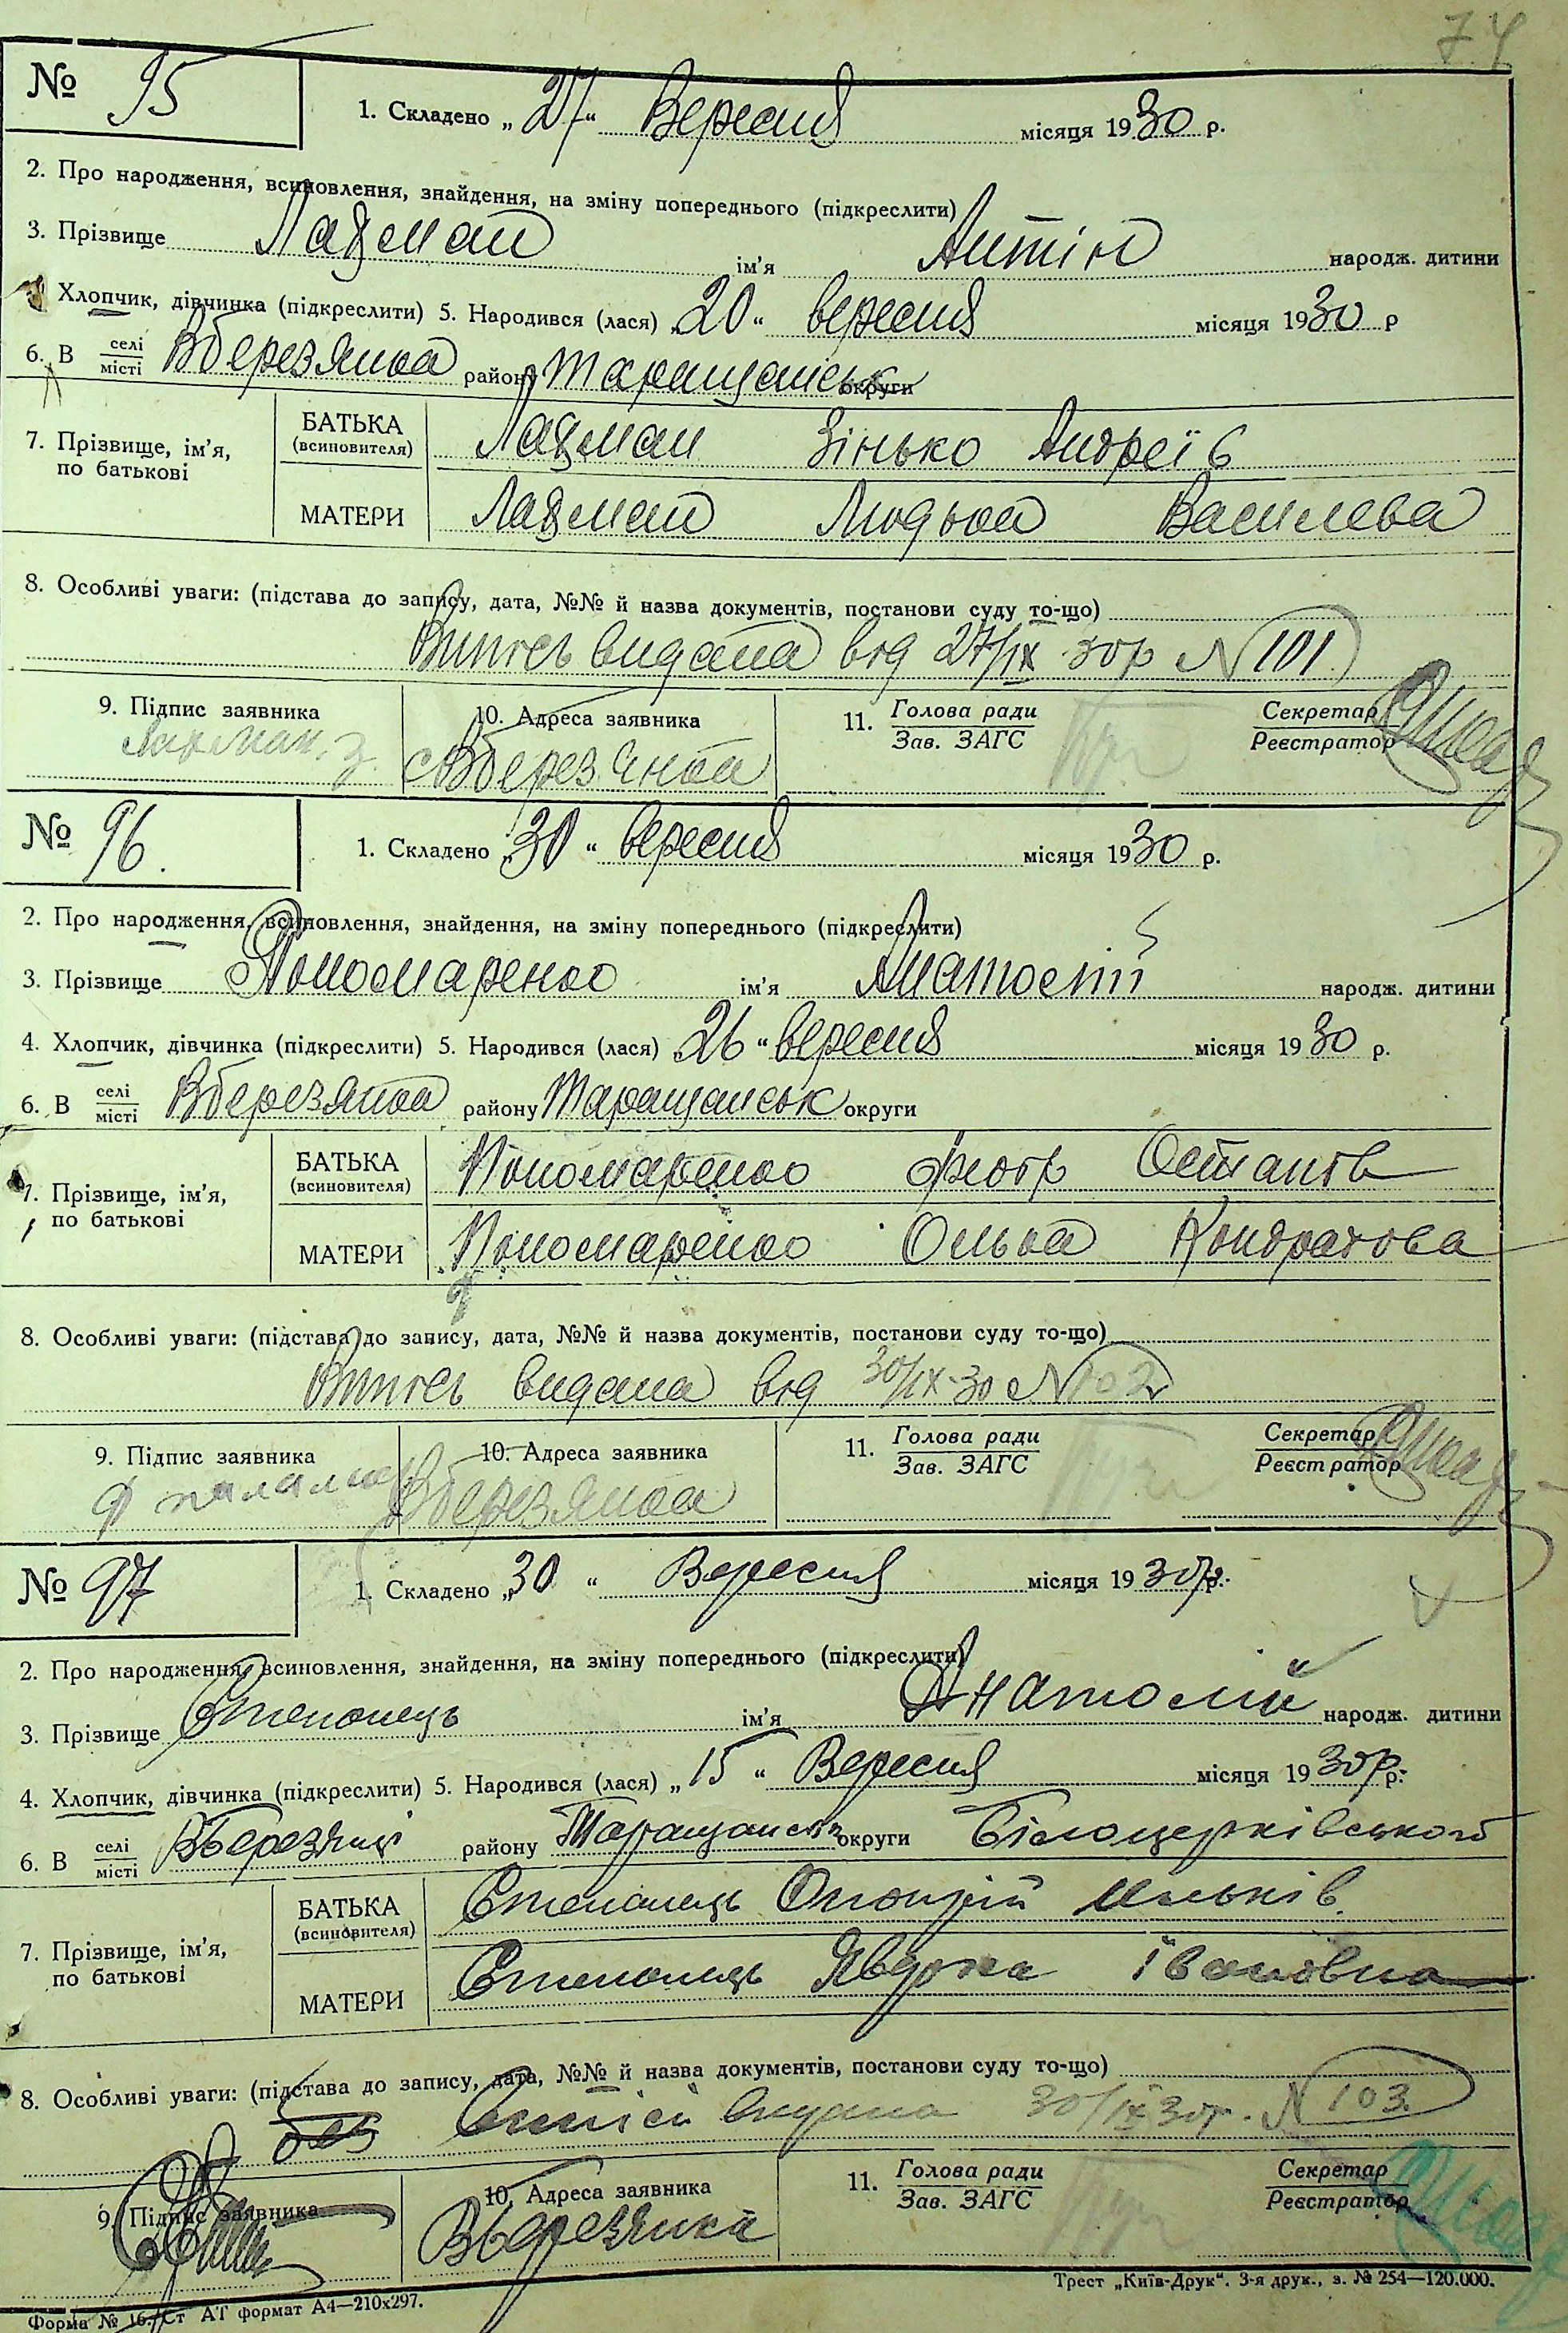 74
№ 95
1. Складено „27“ Вересня місяця 1930 р.
2. Про народження, всиновлення, знайдення, на зміну попереднього (підкреслити)
3. Прізвище Лахман ім’я Антін народж. дитини
Хлопчик, дівчинка (підкреслити) 5. Народився (лася) „20“ вересня місяця 1930 р
6. В селі/місті Вберезянка району Таращанськ округи
7. Прізвище, ім’я, по батькові
БАТЬКА (всиновителя) Лахман Зінько Андреїв
МАТЕРИ Лахман Людька Василева
8. Особливі уваги: (підстава до запису, дата, №№ й назва документів, постанови суду то-що)
Випись видана від 27/IX 30р N 101
9. Підпис заявника 10. Адреса заявника 11. Голова ради/Зав. ЗАГС Секретар/Реєстратор
Лахман З. с Вберезянка
№ 96.
1. Складено „30“ вересня місяця 1930 р.
2. Про народження, всиновлення, знайдення, на зміну попереднього (підкреслити)
3. Прізвище Пономаренко ім’я Анатолій народж. дитини
4. Хлопчик, дівчинка (підкреслити) 5. Народився (лася) „26“ вересня місяця 1930 р.
6. В селі/місті Вберезянка району Таращанськ округи
7. Прізвище, ім’я, по батькові
БАТЬКА (всиновителя) Пономаренко Федір Остапів
МАТЕРИ Пономаренко Олька Кондратова
8. Особливі уваги: (підстава до запису, дата, №№ й назва документів, постанови суду то-що)
Випись видана від 30/IX-30 N 102
9. Підпис заявника 10. Адреса заявника 11. Голова ради/Зав. ЗАГС Секретар/Реєстратор
Вберезянка
№ 97
1. Складено „30“ Вересня місяця 1930р.
2. Про народження, всиновлення, знайдення, на зміну попереднього (підкреслити)
3. Прізвище Степанець ім’я Анатолій народж. дитини
4. Хлопчик, дівчинка (підкреслити) 5. Народився (лася) „15“ Вересня місяця 1930р.
6. В селі/місті ВБерезянці району Таращанськ округи Білоцерківської
7. Прізвище, ім’я, по батькові
БАТЬКА (всиновителя) Степанець Ільків
МАТЕРИ Степанець Явдоха Івановна
8. Особливі уваги: (підстава до запису, дата, №№ й назва документів, постанови суду то-що)
видана 30/IX 30р. N 103.
9. Підпис заявника 10. Адреса заявника 11. Голова ради/Зав. ЗАГС Секретар/Реєстратор
Вберезянка
Форма № 16. Ст АТ формат А4—210х297.
Трест „Київ-Друк“. 3-я друк., з. № 254—120.000.